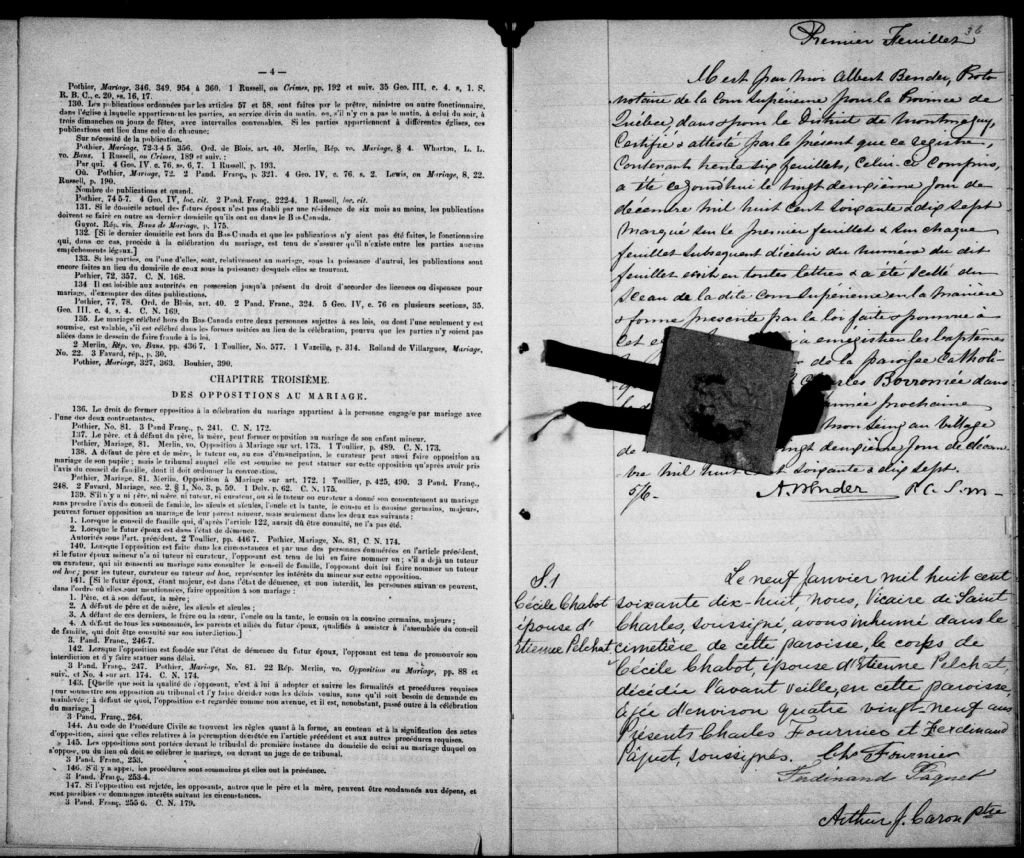 — 4 —
Pothier, Mariage, 346, 349, 954 à 360. 1 Russell, on Crimes, pp. 192 et suiv. 35 Geo. III, c. 4, s. 1. S.
R. B. C., c. 20, ss. 16, 17.
130. Les publications ordonnées par les articles 57 et 58, sont faites par le prêtre, ministre ou autre fonctionnaire,
dans l'église à laquelle appartiennent les parties, au service divin du matin, ou, s'il n'y en a pas le matin, à celui du soir, à
trois dimanches ou jours de fêtes, avec intervalles convenables. Si les parties appartiennent à différentes églises, ces
publications ont lieu dans celle de chacune;
Sur nécessité de la publication.
Pothier, Mariage, 72-3-4-5 356. Ord. de Blois, art. 40. Merlin, Rép. vo. Mariage, § 4. Wharton, L. L.
vo. Bans. 1 Russell, on Crimes, 189 et suiv.:
Par qui. 4 Geo. IV, c. 76, ss. 6, 7. 1 Russell, p. 193.
Où. Pothier, Mariage, 72. 2 Pand. Franç., p. 321. 4 Geo. IV, c. 76, s. 2. Lewis, on Mariage, 8, 22.
Russell, p. 190.
Nombre de publications et quand.
Pothier, 74 5-7. 4 Geo. IV, loc. cit. 2 Pand. Franç. 222-4. 1 Russell, loc. cit.
131. Si le domicile actuel des futurs époux n'est pas établi par une résidence de six mois au moins, les publications
doivent se faire en outre au dernier domicile qu'ils ont eu dans le Bas-Canada.
Guyot, Rép. vis. Bans de Mariage, p. 175.
132. [Si le dernier domicile est hors du Bas-Canada et que les publications n'y aient pas été faites, le fonctionnaire
qui, dans ce cas, procède à la célébration du mariage, est tenu de s'assurer qu'il n'existe entre les parties aucuns
empêchements légaux.]
133. Si les parties, ou l'une d'elles, sont, relativement au mariage, sous la puissance d'autrui, les publications sont
encore faites au lieu du domicile de ceux sous la puissance desquels elles se trouvent.
Pothier, 72, 357. C. N. 168.
134 Il est loisible aux autorités en possession jusqu'à présent du droit d'accorder des licences ou dispenses pour
mariage, d'exempter des dites publications.
Pothier, 77, 78. Ord. de Blois, art. 40. 2 Pand. Franc., 324. 5 Geo. IV, c. 76 en plusieurs sections, 35.
Geo. III. c. 4, s. 4. C. N. 169.
135. Le mariage célébré hors du Bas-Canada entre deux personnes sujettes à ses lois, ou dont l'une seulement y est
soumise, est valable, s'il est célébré dans les formes usitées au lieu de la célébration, pourvu que les parties n'y soient pas
allées dans le dessein de faire fraude à la loi.
2 Merlin, Rép. vo. Bans, pp. 436 7. 1 Toullier, No. 577. 1 Vazeille, p. 314. Rolland de Villargues, Mariage,
No. 22. 3 Favard, rép., p. 30.
Pothier, Mariage, 327, 363. Bouhier, 390.
CHAPITRE TROISIÈME.
DES OPPOSITIONS AU MARIAGE.
136. Le droit de former opposition à la célébration du mariage appartient à la personne engagée par mariage avec
l'une des deux contractantes.
Pothier, No. 81. 3 Pand Franç., p. 241. C. N. 172.
137. Le père, et à défaut du père, la mère, peut former opposition au mariage de son enfant mineur.
Pothier, Mariage, 81. Merlin, vo. Opposition à Mariage sur art. 173. 1 Toullier, p. 489. C. N. 173.
138. A défaut de père et de mère, le tuteur ou, au cas d'émancipation, le curateur peut aussi faire opposition au
mariage de son pupille; mais le tribunal auquel elle est soumise ne peut statuer sur cette opposition qu'après avoir pris
l'avis du conseil de famille, dont il doit ordonner la convocation.
Pothier, Mariage, 81. Merlin, Opposition à Mariage sur art. 172. 1 Toullier, p. 425, 490. 3 Pand. Franç.,
248. 2 Favard, Mariage, sec. 2, § 1, No. 3, p. 59. 1 Delv. p. 62. C. N. 175.
139. S'il n'y a ni père, ni mère, ni tuteur, ni curateur, ou si le tuteur ou curateur a donné son consentement au mariage
sans prendre l'avis du conseil de famille, les aïeuls et aïeules, l'oncle et la tante, le cousin et la cousine germains, majeurs,
peuvent former opposition au mariage de leur parent mineur, mais seulement dans les deux cas suivants:
1. Lorsque le conseil de famille qui, d'après l'article 122, aurait dû être consulté, ne l'a pas été.
2. Lorsque le futur époux est dans l'état de démence.
Autorités sous l'art. précédent. 2 Toullier, pp. 446 7. Pothier, Mariage, No. 81, C. N. 174.
140. Lorsque l'opposition est faite dans les circonstances et par une des personnes énumérées en l'article précédent,
si le futur époux mineur n'a ni tuteur ni curateur, l'opposant est tenu de lui en faire nommer un; s'il a déjà un tuteur
ou curateur, qui ait consenti au mariage sans consulter le conseil de famille, l'opposant doit lui faire nommer un tuteur
ad hoc; pour les tuteur, curateur ou tuteur ad hoc, représenter les intérêts du mineur sur cette opposition.
141. [Si le futur époux, étant majeur, est dans l'état de démence, et non interdit, les personnes suivantes peuvent,
dans l'ordre où elles sont mentionnées, faire opposition à son mariage:
1. Père, et à son défaut, la mère;
2. A défaut de père et de mère, les aïeuls et aïeules;
3. A défaut de ces derniers, le frère ou la sœur, l'oncle ou la tante, le cousin ou la cousine germains, majeurs;
4. A défaut de tous les susnommés, les parents et alliés du futur époux, qualifiés à assister à l'assemblée du conseil
de famille, qui doit être consulté sur son interdiction.]
3. Pand. Franç., 246-7.
142. Lorsque l'opposition est fondée sur l'état de démence du futur époux, l'opposant est tenu de promouvoir son
interdiction et d'y faire statuer sans délai.
3 Pand. Franç., 247. Pothier, Mariage, No. 81. 22 Rép. Merlin, vo. Opposition au Mariage, pp. 88 et
suiv., et No. 4 sur art. 174. C. N. 174.
143. [Quelle que soit la qualité de l'opposant, c'est à lui à adopter et suivre les formalités et procédures requises
pour soumettre son opposition au tribunal et l'y faire décider sous les délais voulus, sans qu'il soit besoin de demande en
mainlevée; à défaut de quoi, l'opposition est regardée comme non avenue, et il est, nonobstant, passé outre à la célébration
du mariage.]
3 Pand. Franç., 264.
144. Au code de Procédure Civile se trouvent les règles quant à la forme, au contenu et à la signification des actes
d'opposition, ainsi que celles relatives à la péremption décrétée en l'article précédent et aux autres procédures requises.
145. Les oppositions sont portées devant le tribunal de première instance du domicile de celui au mariage duquel on
s'oppose, ou du lieu où doit se célébrer le mariage, ou devant un juge de ce tribunal.
3 Pand. Franç., 253.
146. S'il y a appel, les procédures sont sommaires et elles ont la préséance.
3 Pand. Franç., 253-4.
147. Si l'opposition est rejetée, les opposants, autres que le père et la mère, peuvent être condamnés aux dépens, et
sont passibles de dommages intérêts suivant les circonstances.
3 Pand. Franç., 255 6. C. N. 179.
36
Premier Feuillet
par moi Albert Bender, Proto
notaire de la Cour Supérieure pour la Province de
Québec, dans & pour le District de Montmagny,
Certifié & attesté par le présent que ce Registre,
Contenant trente six feuillets, Celui-ci Compris,
a été ce jourd'hui le vingt deuxième jour de
décembre mil huit cent soixante & dix sept
Marqué sur le premier feuillet & sur chaque
feuillet subséquent d'icelui du numéro du dit
feuillet écrit en toutes lettres & a été scellé du
Sceau de la dite Cour Supérieure en la manière
& forme présente par la loi faite & pourvue à
cet e a enregistrer les baptêmes
de la paroisse Catholi-
Charles Borromée dans
année prochaine
mon seing au Village
de ingt deuxième jour de décem
bre mil huit cent soixante & dix sept.
A. Bender P. C. S. M—
S. 1
Cécile Chabot
épouse d'
Etienne Pelchat
Le neuf Janvier mil huit cent
soixante dix-huit, nous, Vicaire de Saint
Charles, soussigné avons inhumé dans le
cimetière de cette paroisse, le corps de
Cécile Chabot, épouse d'Etienne Pelchat,
décédée l'avant veille, en cette paroisse,
âgée d'environ quatre vingt-neuf ans
Présents Charles Fournier et Ferdinand
Pâquet, soussignés. Chs Fournier
Ferdinand Paquet
Arthur J. Caron ptre